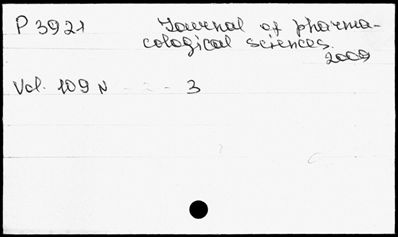 P 3921 Journal of pharma-
cological sciences.
2009
Vol. 109 N - - - 3